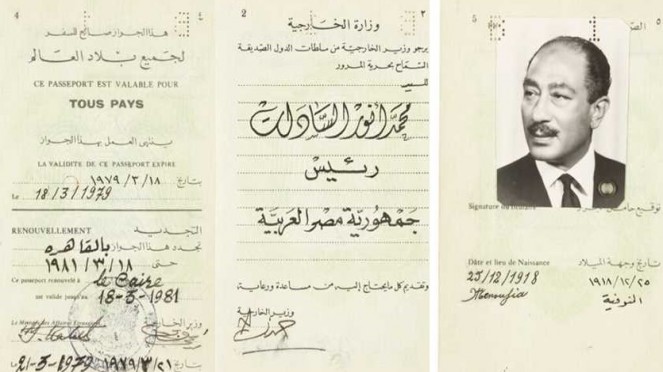 ٤
4
هذا الجواز صالح للسفر
لجميع بلاد العالم
CE PASSEPORT EST VALABLE POUR
TOUS PAYS
ينتهى العمل بهذا الجواز
LA VALIDITE DE CE PASSPORT EXPIRE
بتاريخ ١٩٧٩/٣/١٨
Le 18/3/1979
RENOUVELLEMENT
التجديد
تجدد هذا الجواز بالقاهرة
حتى ١٩٨١/٣/١٨
Ce passeport renouvelé à le Caire
est valable jusqu'au 18-3-1981
Le Ministre des Affaires Etrangères
وزير الخارجية
Le 21-3-1979
بتاريخ ١٩٧٩/٣/٢١
٢
2
وزارة الخارجية
يرجو وزير الخارجية من سلطات الدول الصديقة
السماح بحرية المرور
للسيد
محمد أنور السادات
رئيس
جمهورية مصر العربية
وتقديم كل ما يحتاج إليه من مساعدة ورعاية
وزير الخارجية
5
٥
Signature du titulaire
Date et lieu de Naissance
تاريخ وجهة الميلاد
25/12/1918
١٩١٨/١٢/٢٥
Menoufia
المنوفية